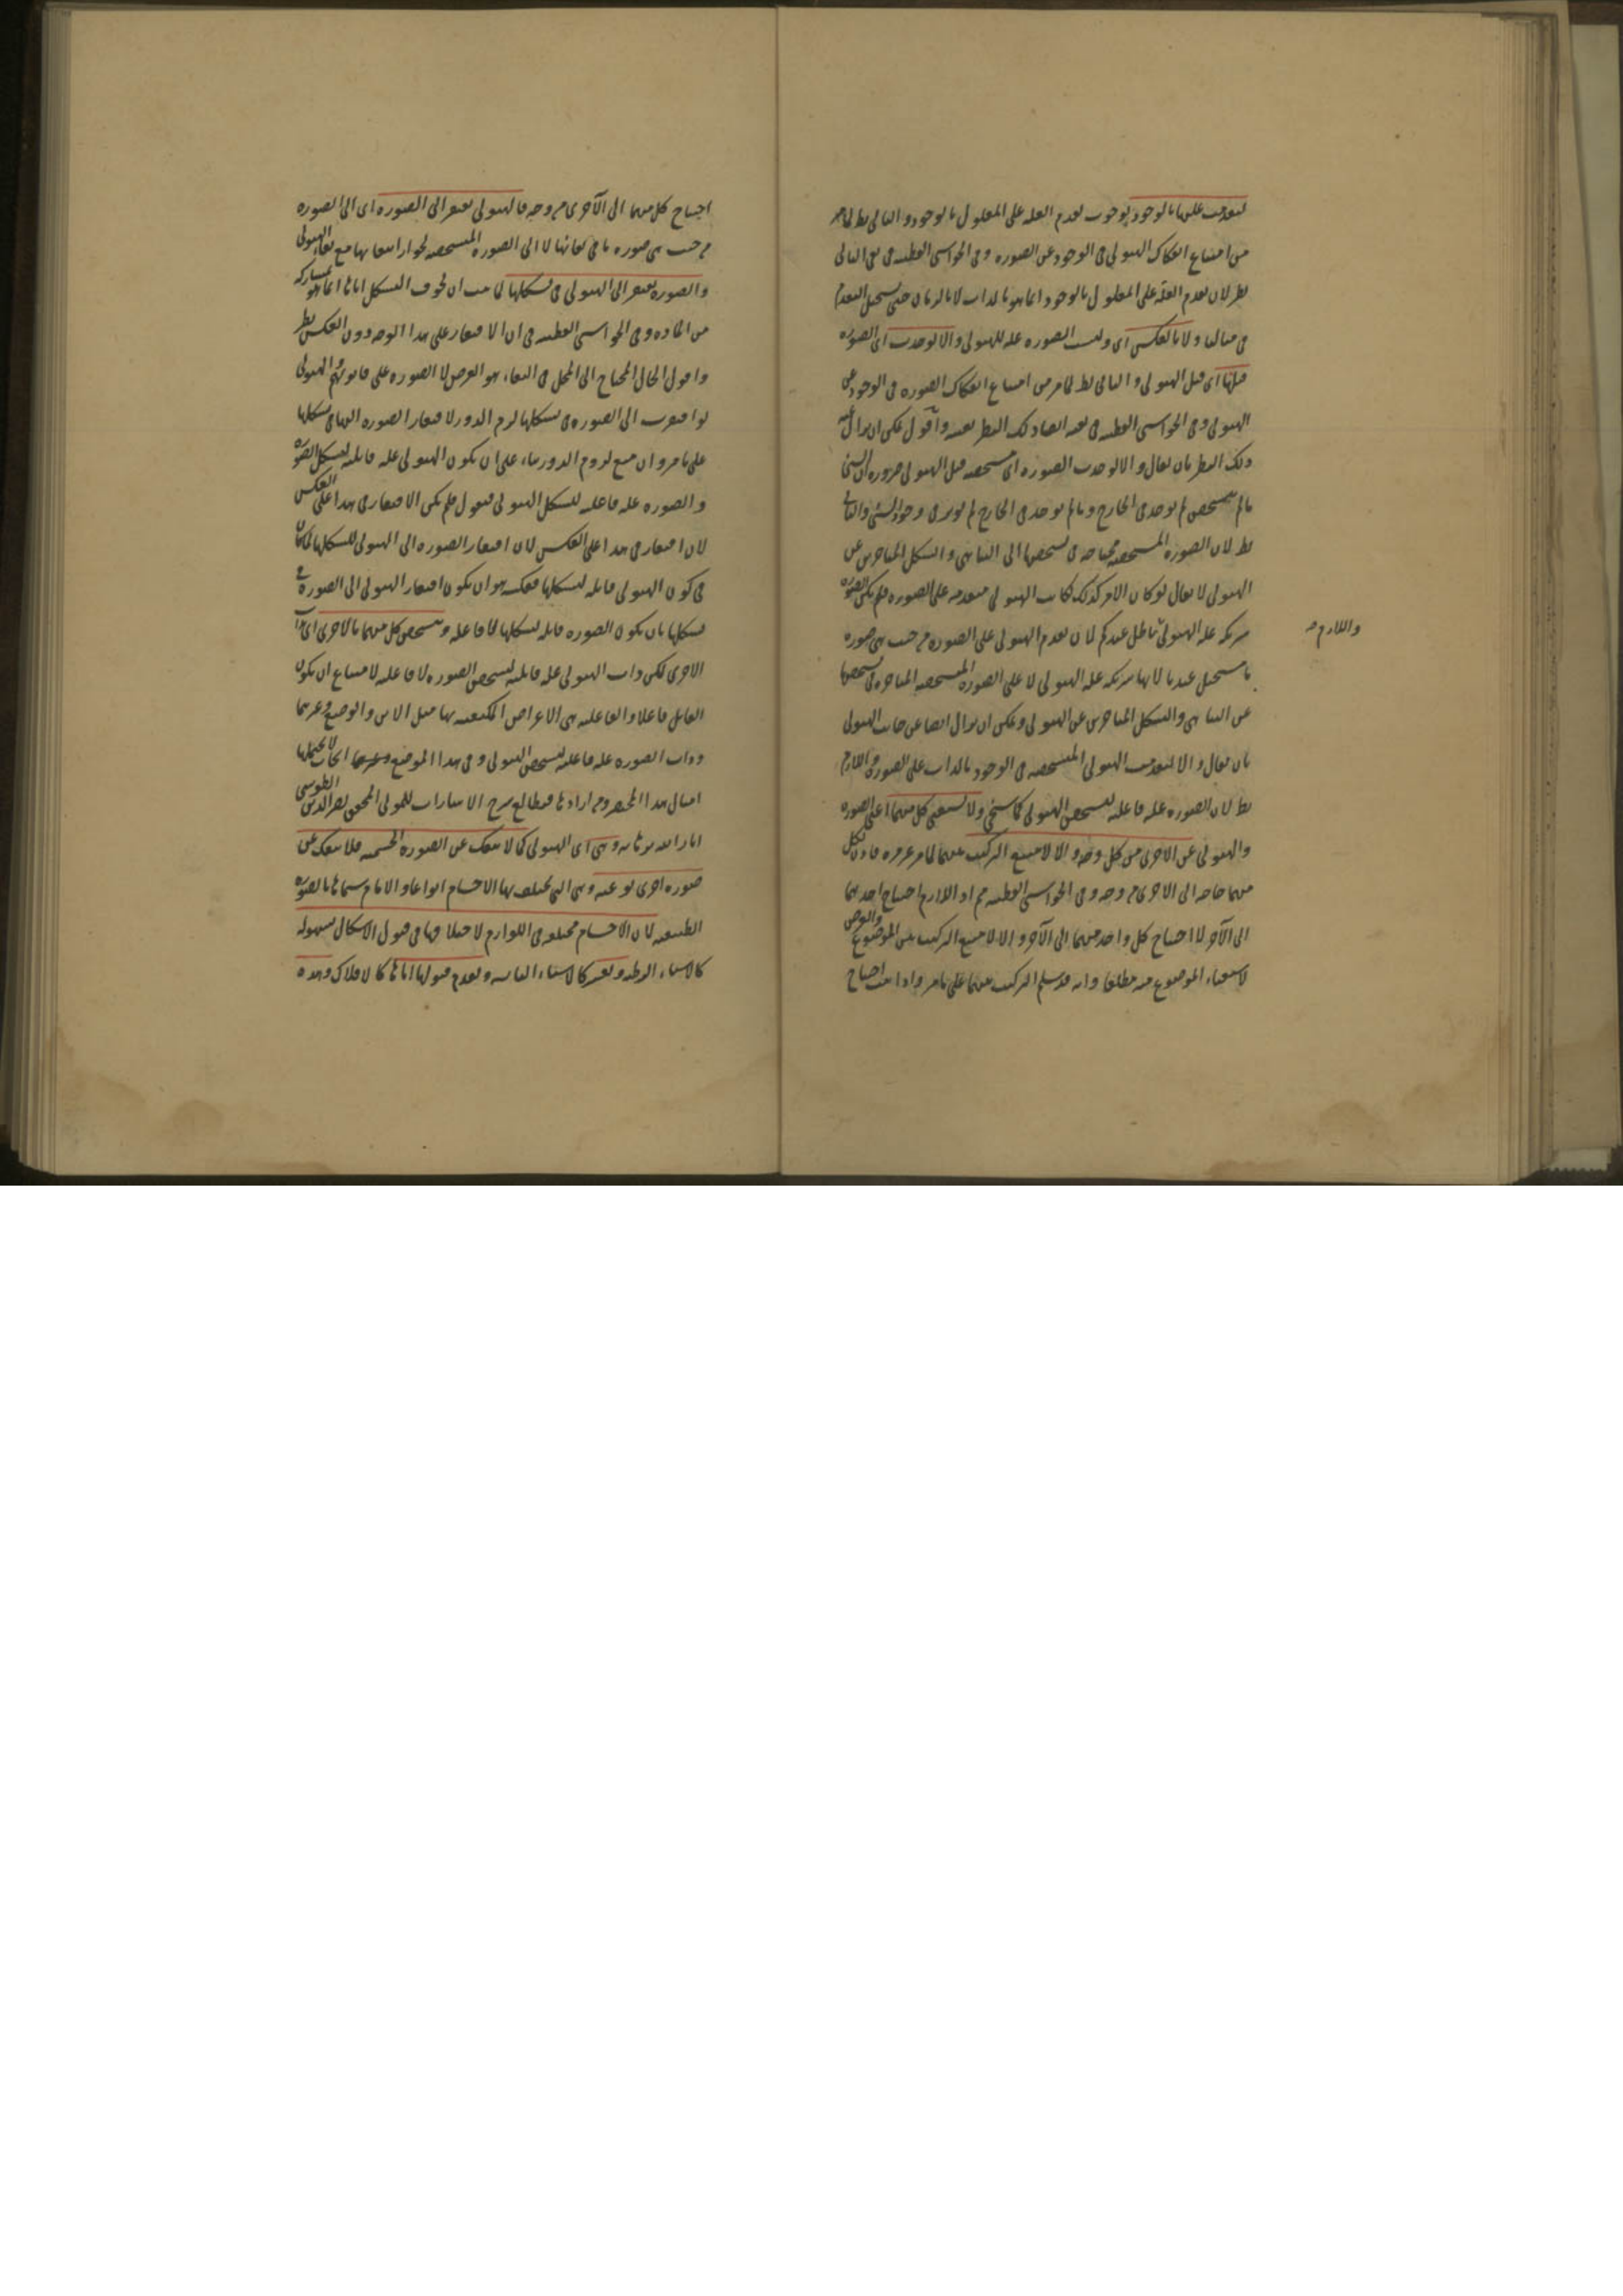 لتقدمت عليها بالوجود لوجوب تقدم العلة على المعلول بالوجود والتالى بط لما مر
من امتناع انفكاك الهيولى فى الوجود عن الصورة وفى الحواشى القطبية فى نفى التالى
نظر لان تقدم العلة على المعلول بالوجود انما هو بالذات لا بالزمان حتى يستحيل التقدم
فى ولا بالعكس اى وليست الصورة علة للهيولى والا لوجدت اى الصورة
قبلها اى قبل الهيولى والتالى بط لما مر من امتناع انفكاك الصورة فى الوجود عن
الهيولى وفى الحواشى القطبية فيه ايضا ذلك النظر بعينه واقول يمكن ان يزال
ذلك النظر بان يقال والا لوجدت الصورة اى مشخصة قبل الهيولى ضرورة ان الشئ
ما لم يتشخص لم يوجد فى الخارج وما لم يوجد فى الخارج لم يؤثر فى وجود الشئ والتالى
بط لان الصورة المشخصة محتاجة فى تشخصها الى التناهى والشكل المتاخرين عن
الهيولى لا يقال لو كان الامر كذلك لكانت الهيولى متقدمة على الصورة فلم يكن الصورة
شريكة علة الهيولى باطل عندكم لان تقدم الهيولى على الصورة من حيث هى صورة
ما يستحيل عندنا لانها شريكة علة الهيولى لا على الصورة المشخصة المتاخرة فى تشخصها
واللازم
عن التناهى والشكل المتاخرين عن الهيولى ويمكن ان يزال ايضا عن جانب الهيولى
بان يقال والا لتقدمت الهيولى المتشخصة فى الوجود بالذات على الصورة واللازم
بط لان الصورة علة فاعلية لتشخص الهيولى كما سيجئ ولا يستغنى كل منهما اعنى الصورة
والهيولى عن الاخرى من كل وجه والا لامتنع التركيب منهما لما مر غير مرة فاذن لكل
منهما حاجة الى الاخرى من وجه وفى الحواشى القطبية اذ اللازم احتياج احدهما
الى الآخر لا احتياج كل واحد منهما الى الآخر والا لامتنع التركيب من الموضوع والعرض
لاستغناء الموضوع عنه مطلقا وانه قد سلم التركيب منهما على ما مر واذا ثبت احتياج
احتياج كل منهما الى الآخرى من وجه فالهيولى تفتقر الى الصورة اى الى الصورة
من حيث هى صورة ما فى بقائها لا الى الصورة المشخصة لجواز انتفائها مع بقاء الهيولى
والصورة تفتقر الى الهيولى فى تشكلها لما ثبت ان لحوق الشكل اياها انما هو بمشاركة
من المادة وفى الحواشى القطبية فى ان الافتقار على هذا الوجه دون العكس نظر
واقول الحال المحتاج الى المحل فى البقاء هو العرض لا الصورة على ما الهيولى
لو افتقرت الى الصورة فى تشكلها لزم الدور لافتقار الصورة اليها فى تشكلها
على ما مر وان منع لزوم الدور بناء على ان يكون الهيولى علة قابلية لتشكل الصورة
والصورة علة فاعلية لتشكل الهيولى فنقول فلم يكن الافتقار فى هذا على العكس
لان افتقار فى هذا على العكس لان افتقار الصورة الى الهيولى لتشكلها لما كان
فى كون الهيولى قابلة لتشكلها فعكسه هو ان يكون افتقار الهيولى الى الصورة فى
تشكلها بان يكون الصورة قابلة لتشكلها لا فاعلة وتشخص كل منهما بالاخرى اى بذات
الاخرى لكن ذات الهيولى علة قابلية لتشخص الصورة لا فاعلية لامتناع ان يكون
القابل فاعلا والفاعلية هى الاعراض المكتنفة بها مثل الاين والوضع وغيرهما
وذات الصورة علة فاعلية لتشخص الهيولى وفى هذا الموضع ابحاث لا يحتملها
امثال هذا المختصر ومن ارادها فيطالع شرح الاشارات للمولى المحقق نصير الدين الطوسى
انار الله برهانه وهى اى الهيولى كما لا تنفك عن الصورة الجسمية فلا تنفك عن
صورة اخرى نوعية وهى التى تختلف بها الاجسام انواعا والامام سماها بالصورة
الطبيعية لان الاجسام مختلفة فى اللوازم لاختلافها فى قبول الاشكال بسهولة
كالاشياء الرطبة وبعسر كالاشياء اليابسة وبعدم قبولها اياها كالافلاك وهذه